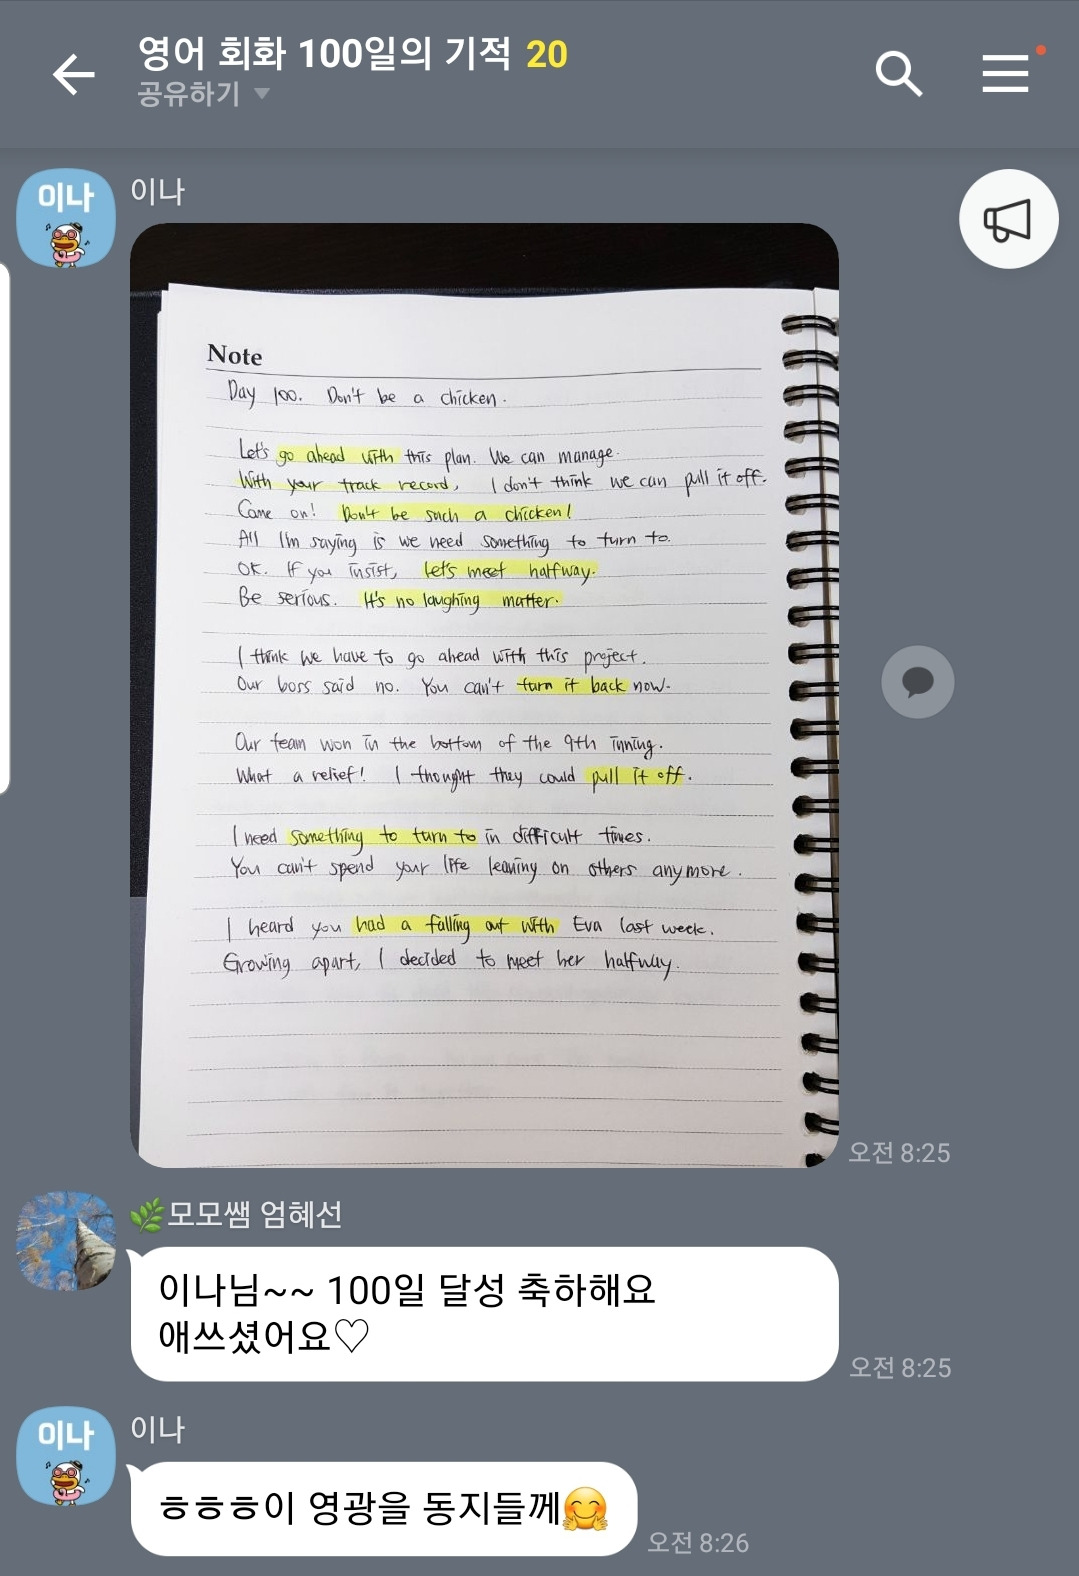 영어 회화 100일의 기적 20
공유하기
이나
이나
Note
Day 100. Don't be a chicken.
Let's go ahead with this plan. We can manage.
With your track record, I don't think we can pull it off.
Come on! Don't be such a chicken!
All I'm saying is we need something to turn to.
OK. If you insist, let's meet halfway.
Be serious. It's no laughing matter.
I think we have to go ahead with this project.
Our boss said no. You can't turn it back now.
Our team won in the bottom of the 9th inning.
What a relief! I thought they could pull it off.
I need something to turn to in difficult times.
You can't spend your life leaning on others anymore.
I heard you had a falling out with Eva last week.
Growing apart, I decided to meet her halfway.
오전 8:25
모모쌤 엄혜선
이나님~~ 100일 달성 축하해요
애쓰셨어요♡
오전 8:25
이나
이나
ㅎㅎㅎ이 영광을 동지들께🤗
오전 8:26